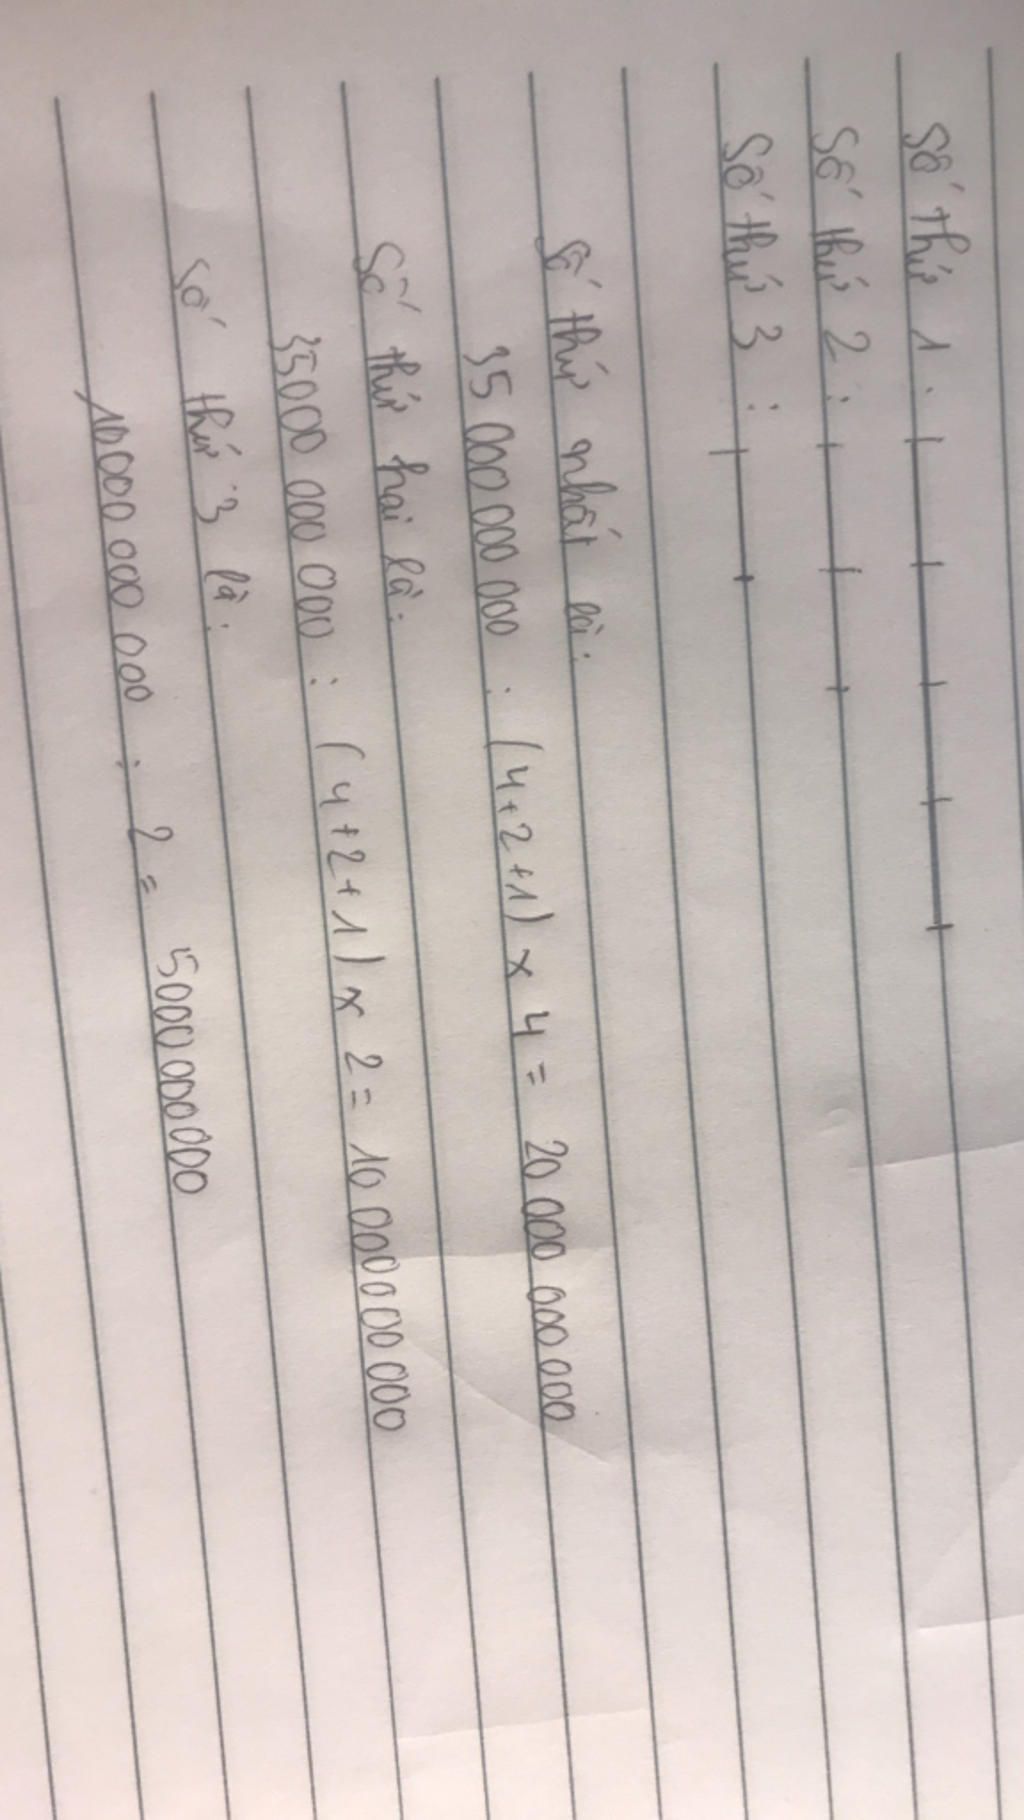 Số thứ 1 :
Số thứ 2 :
Số thứ 3 :
Số thứ nhất là:
35 000 000 000 : (4+2+1) x 4 = 20 000 000 000
Số thứ hai là:
35000 000 000 : (4+2+1) x 2 = 10 000000 000
Số thứ 3 là:
10000 000 000 : 2 = 5000 000000